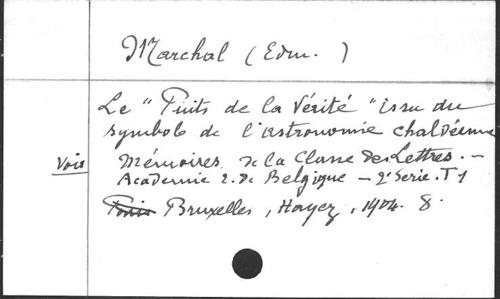 Marchal (Edm. )
Le "Puits de la Vérité" issu du
symbole de l'astronomie chaldéenne
Voir Mémoires de la Classe des Lettres. —
Academie r. de Belgique — 2e Serie. T1
Paris Bruxelles, Hayez, 1904. 8.